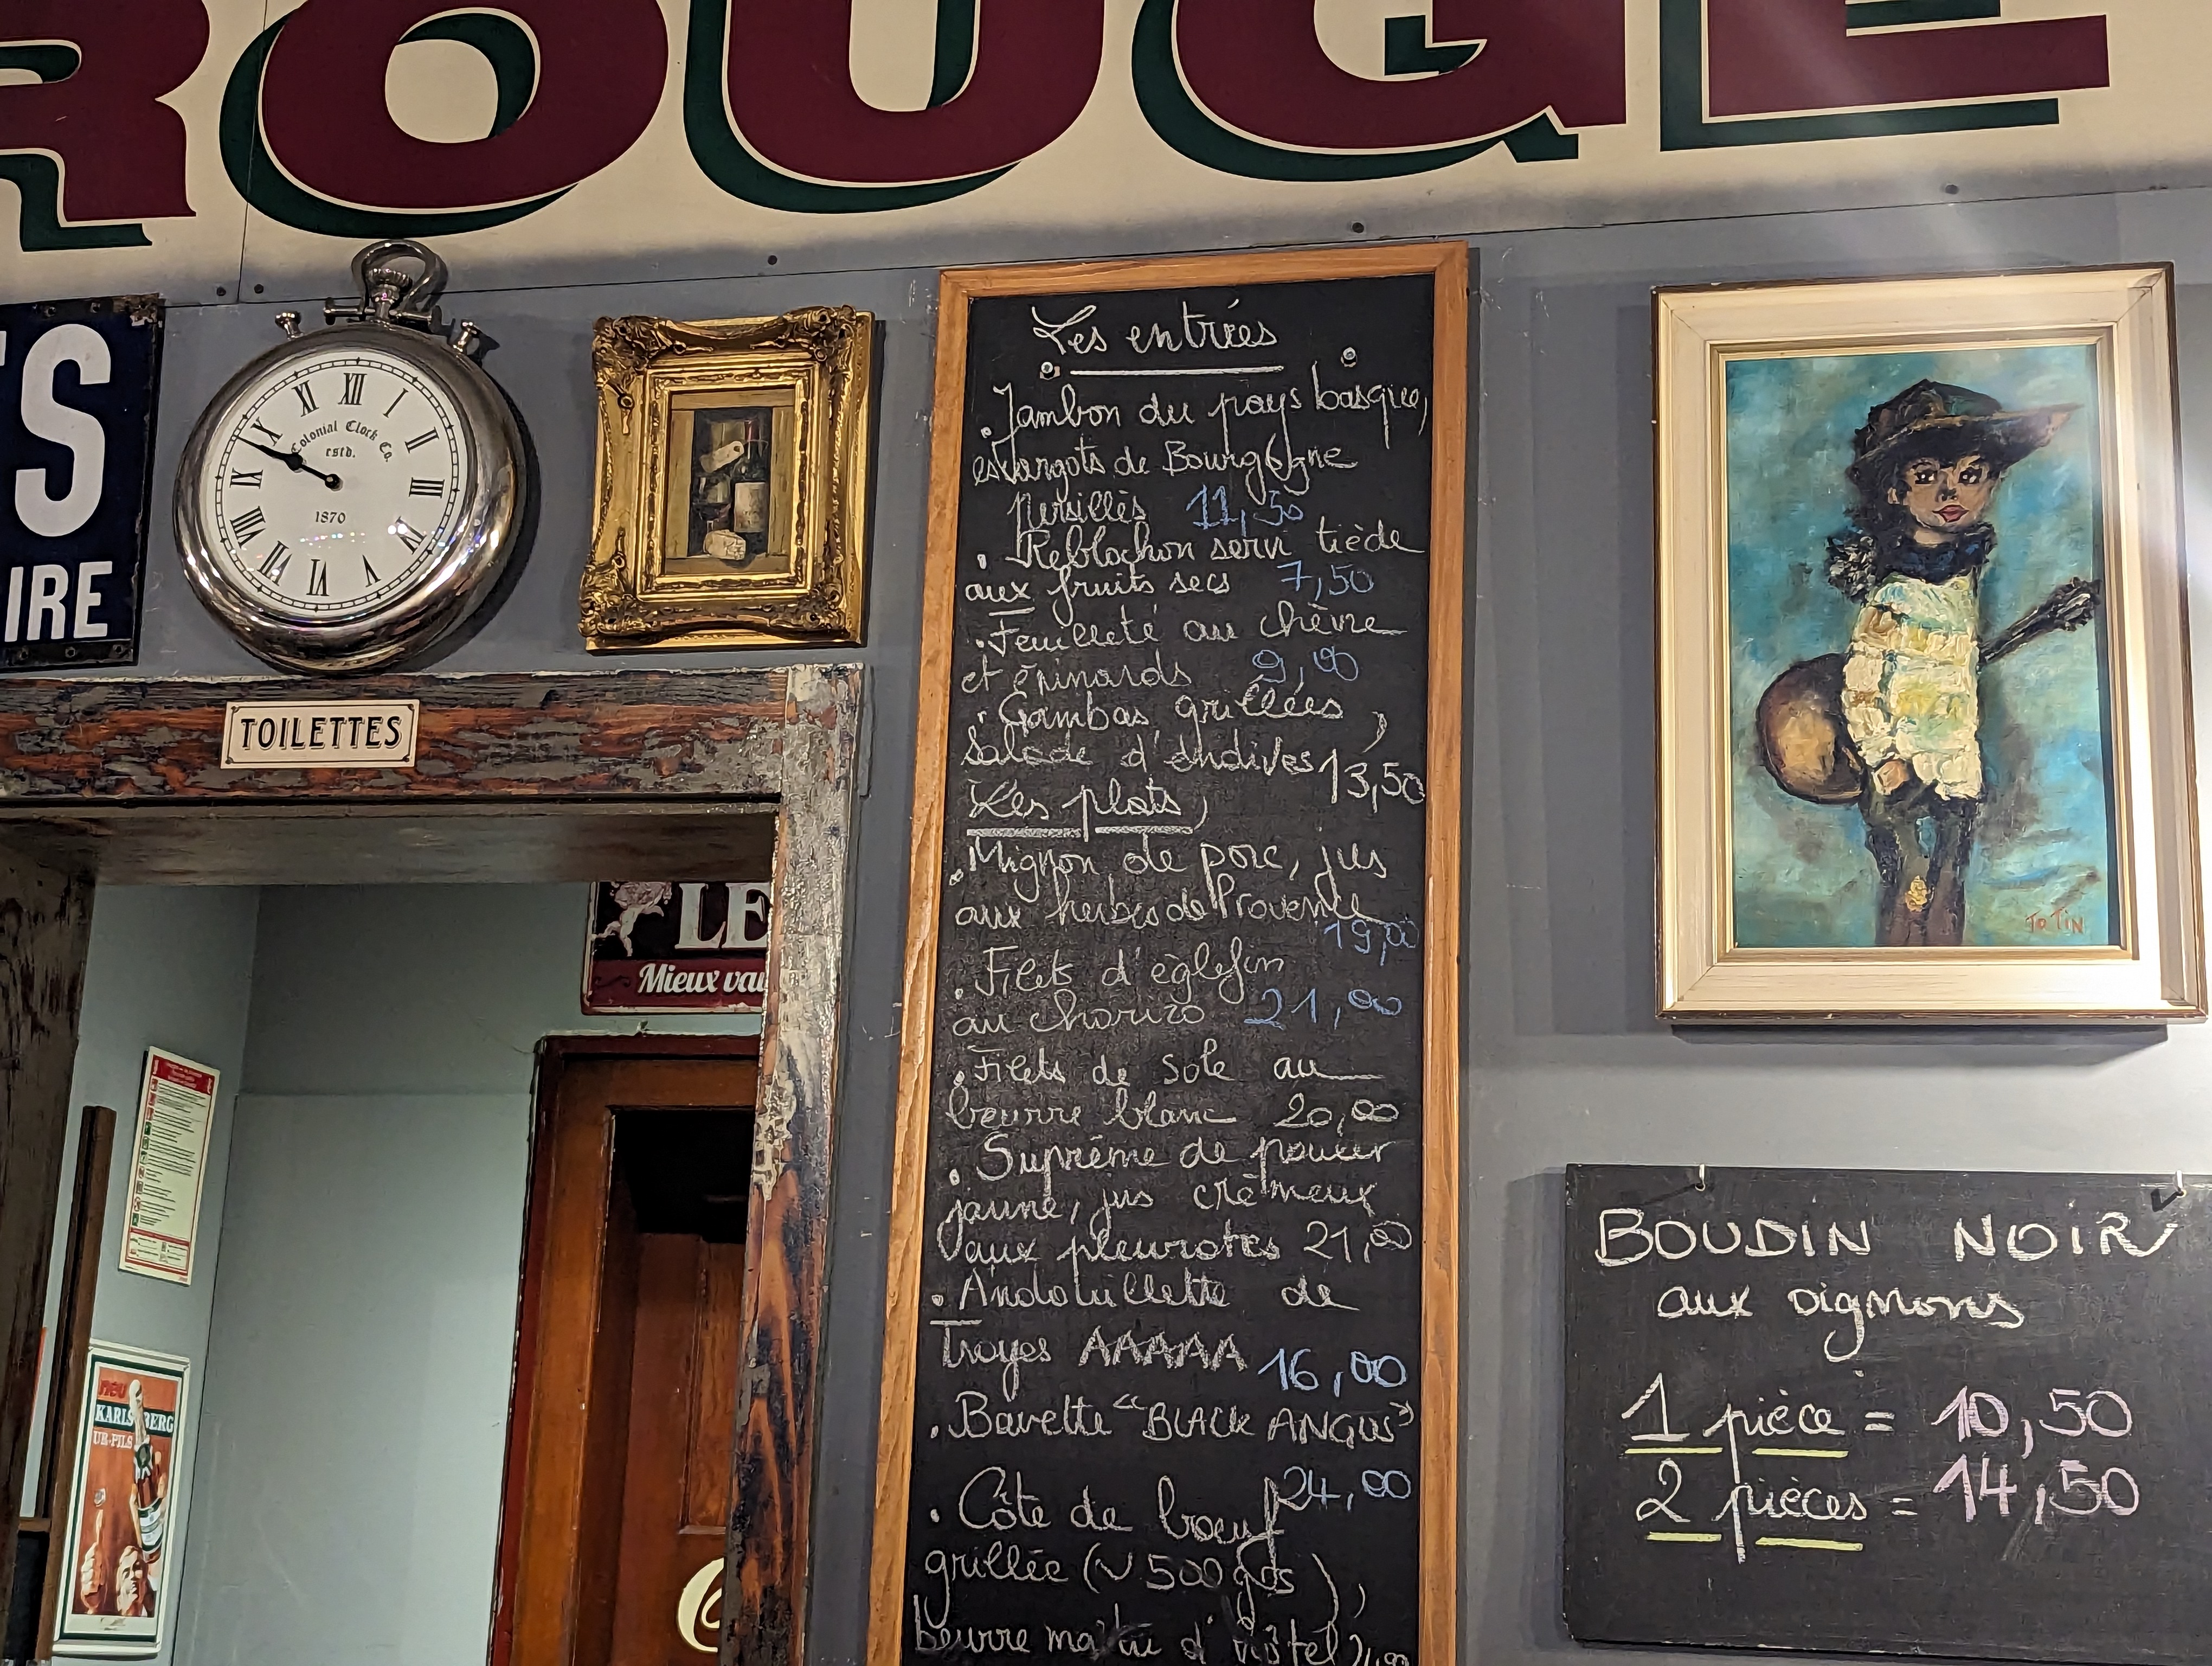 ROUGE
TS
IRE
XII
I
II
III
IV
V
VI
VII
VIII
IX
X
XI
Colonial Clock Co.
estd.
1870
TOILETTES
LE
Mieux vau
neu
KARLSBERG
UR-PILS
Les entrées
. Jambon du pays basque,
escargots de Bourgogne
persillés 11,50
. Reblochon servi tiède
aux fruits secs 7,50
. Feuilleté au chèvre
et épinards 9,00
. Gambas grillées,
salade d'endives 13,50
Les plats,
. Mignon de porc, jus
aux herbes de Provence
19,00
. Filets d'églefin
au chorizo 21,00
. Filets de sole au
beurre blanc 20,00
. Suprême de poulet
jaune, jus crémeux
aux pleurotes 21,00
. Andouillette de
Troyes AAAAA 16,00
. Bavette "BLACK ANGUS"
24,00
. Côte de boeuf
grillée (~ 500 grs),
beurre maître d'hôtel
JO TIN
BOUDIN NOIR
aux oignons
1 pièce = 10,50
2 pièces = 14,50